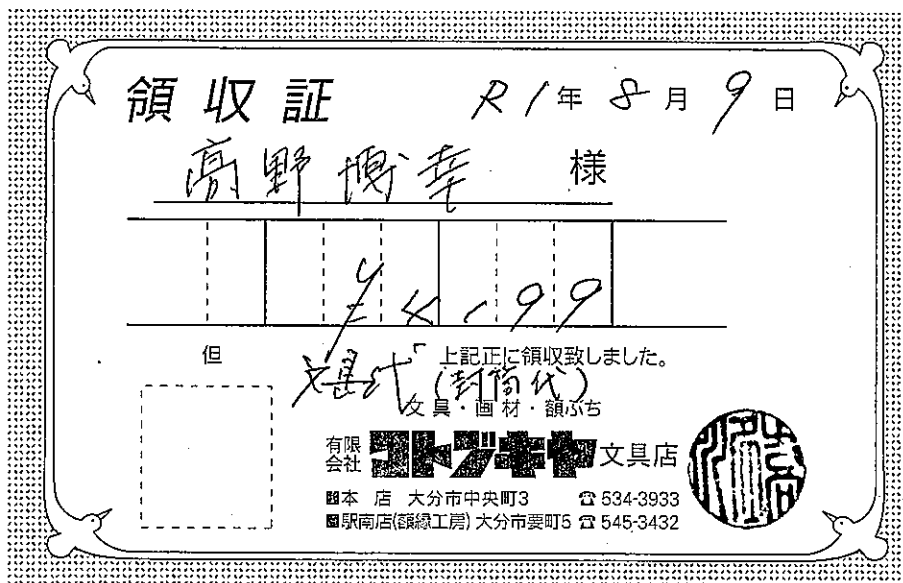 領収証 R1年8月9日
高野博幸 様
¥4199
但 文具代(封筒代) 上記正に領収致しました。
文具・画材・額ぶち
有限会社 コトブキヤ文具店
本 店 大分市中央町3 ☎534-3933
駅南店(額縁工房) 大分市要町5 ☎545-3432